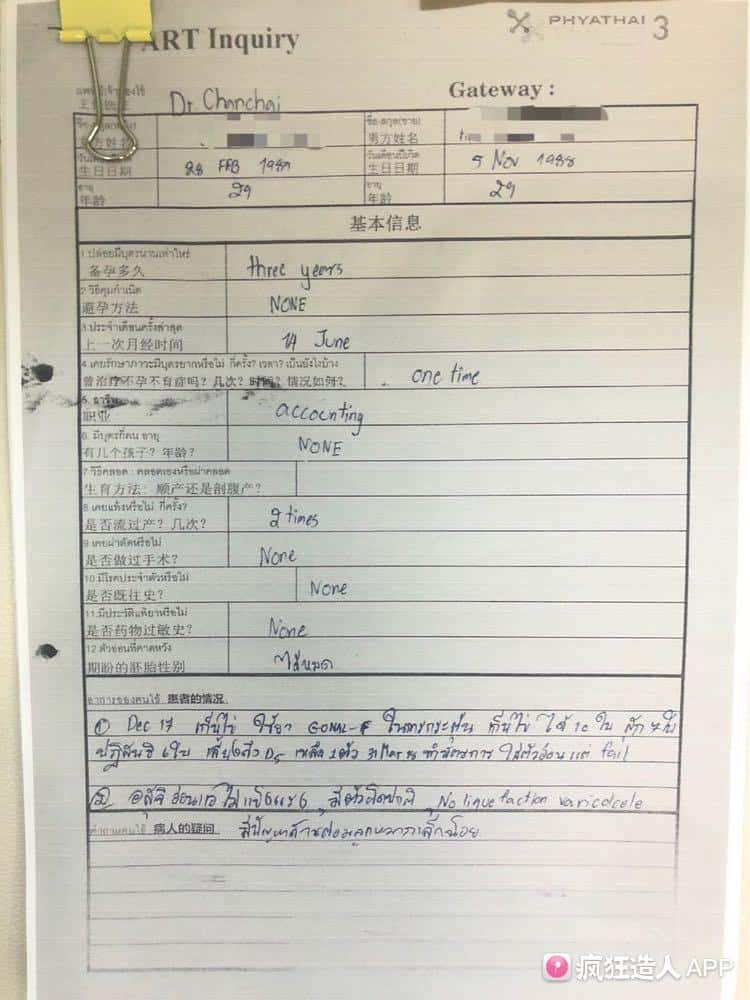 ART Inquiry
PHYATHAI 3
Dr. Chanchai
Gateway :
28 FEB 1989
男方姓名
生日日期
5 Nov 1988
生日日期
อายุ
年龄
29
อายุ
年龄
29
基本信息
1.ปล่อยมีบุตรนานเท่าไหร่
备孕多久
three years
2 วิธีคุมกำเนิด
避孕方法
NONE
3.ประจำเดือนครั้งล่าสุด
上一次月经时间
14 June
4.เคยรักษาภาวะมีบุตรยากหรือไม่ กี่ครั้ง? เวลา? เป็นยังไงบ้าง
曾治疗不孕不育症吗？几次？时间？情况如何？
one time
accounting
6. มีบุตรกี่คน อายุ
有几个孩子？年龄？
NONE
7 วิธีคลอด : คลอดเองหรือผ่าคลอด
生育方法：顺产还是剖腹产？
8.เคยแท้งหรือไม่ กี่ครั้ง?
是否流过产？几次？
2 times
9.เคยผ่าตัดหรือไม่
是否做过手术？
None
10.มีโรคประจำตัวหรือไม่
是否既往史？
None
11.มีประวัติแพ้ยาหรือไม่
是否药物过敏史？
None
12.ตัวอ่อนที่คาดหวัง
期盼的胚胎性别
ได้หมด
อาการของคนไข้ 患者的情况
① Dec 17 เก็บไข่ ใช้ยา GONAL-F ในการกระตุ้น เก็บไข่ ได้ 10 ใบ สุก 7 ใบ
ปฏิสนธิ 6 ใบ D5 เหลือ ใส่ตัวอ่อน แต่ fail
② มีตัวผิดปกติ, No liquefaction varicocele
คำถามคนไข้ 病人的疑问
疯狂造人 APP